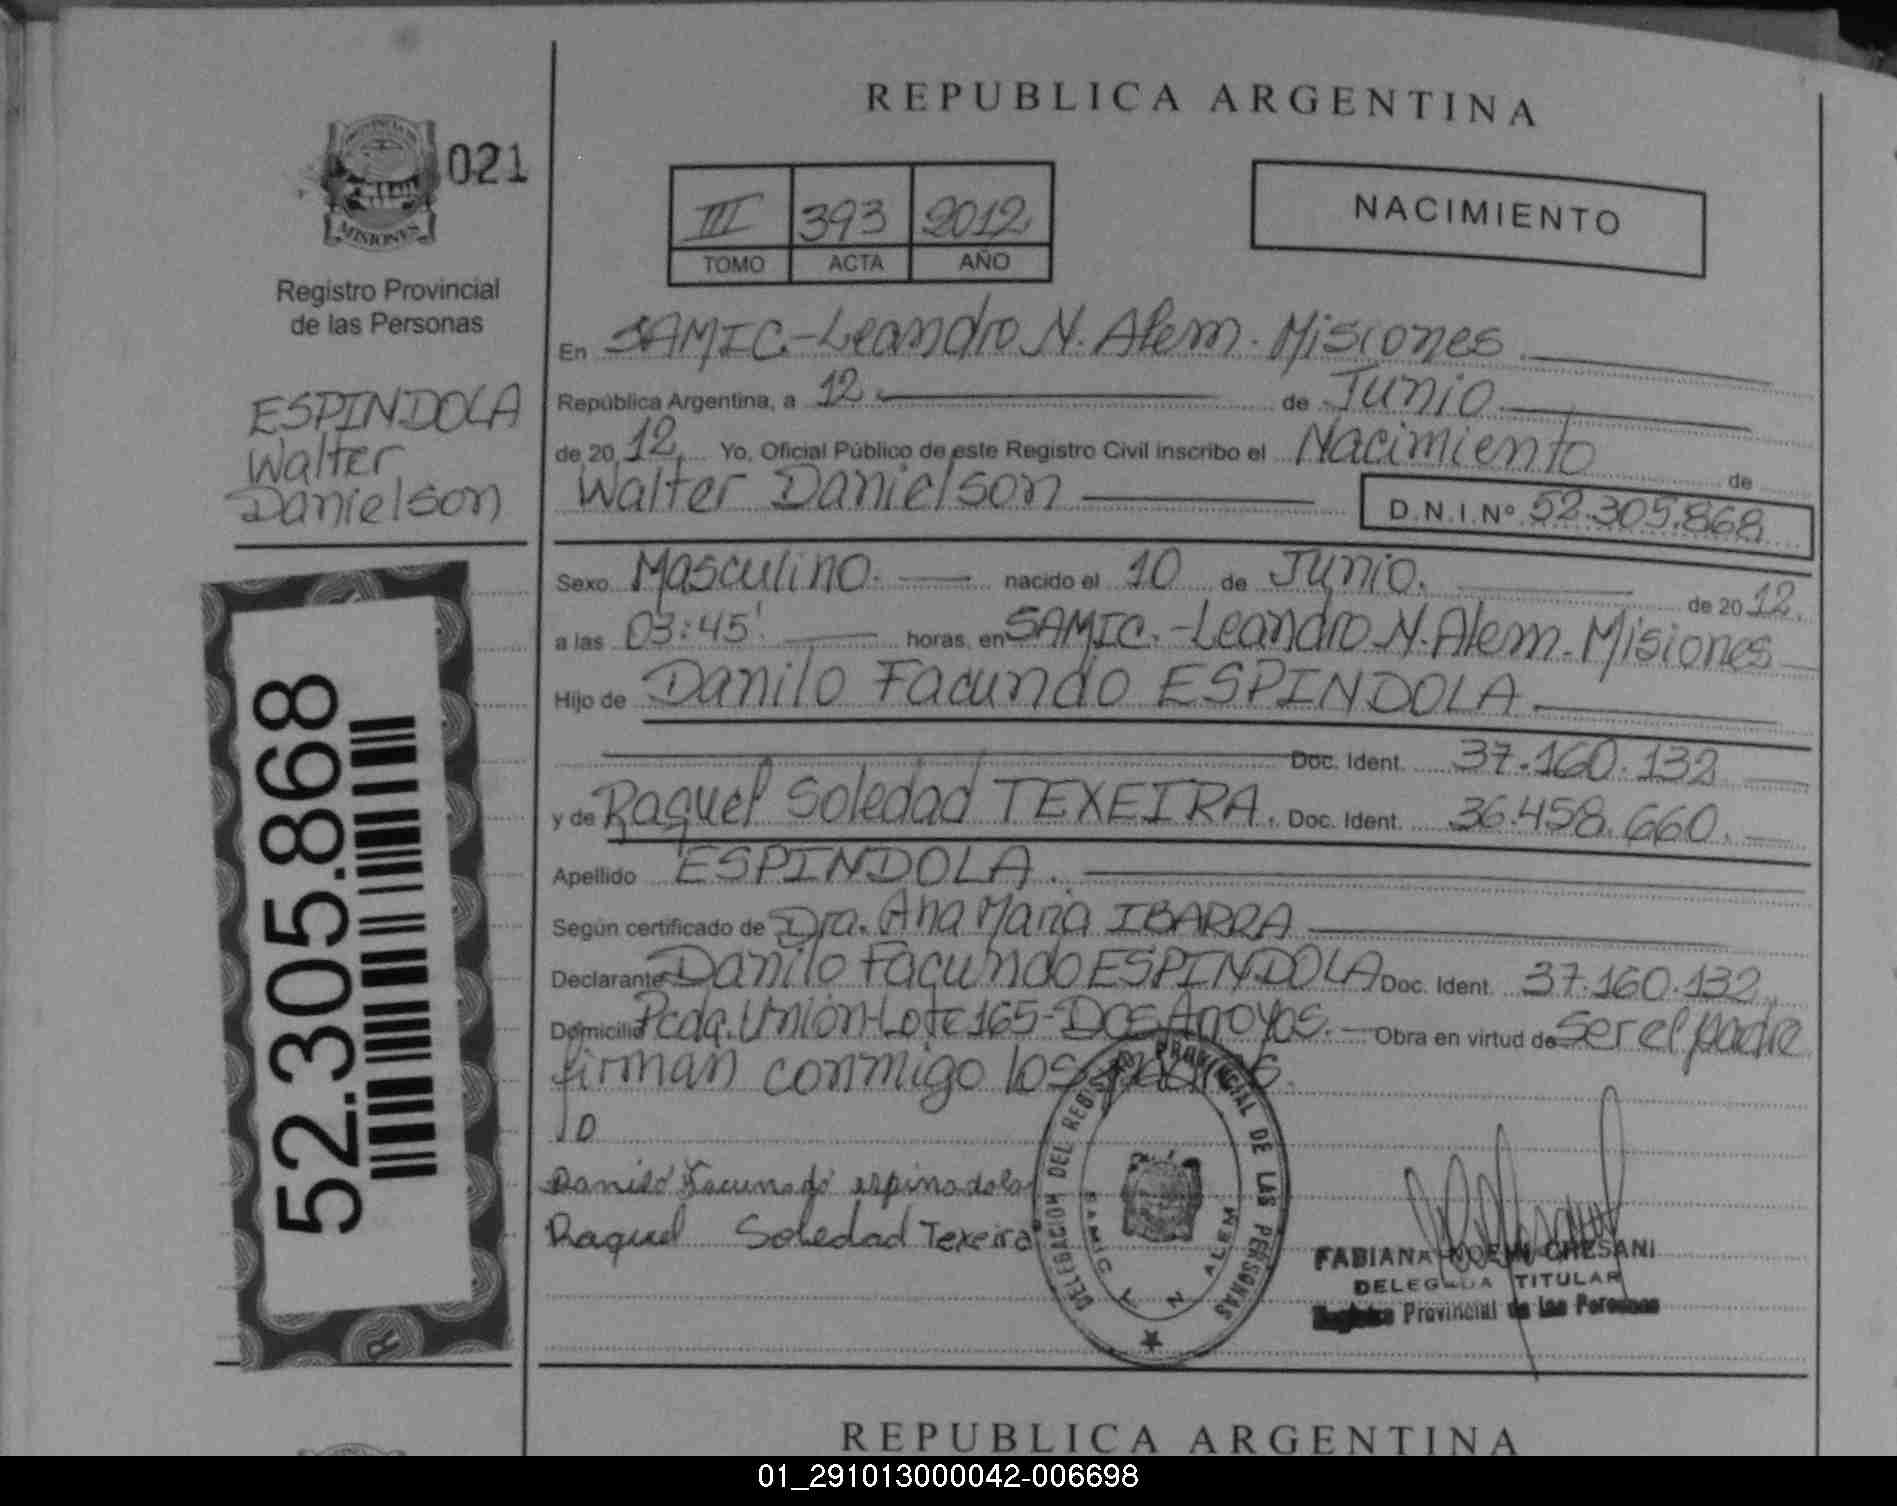 REPUBLICA ARGENTINA
PROVINCIA DE
MISIONES
021
Registro Provincial
de las Personas
III 393 2012
TOMO ACTA AÑO
NACIMIENTO
ESPINDOLA
Walter
Danielson
En SAMIC.-Leandro N. Alem. Misiones
República Argentina, a 12. de Junio
de 20 12. Yo, Oficial Público de este Registro Civil inscribo el Nacimiento de
Walter Danielson D.N.I.Nº 52.305.868
Sexo Masculino. nacido el 10 de Junio. de 20 12.
a las 03:45'. horas, en SAMIC.-Leandro N. Alem. Misiones
Hijo de Danilo Facundo ESPINDOLA
Doc. Ident. 37.160.132
y de Raquel Soledad TEXEIRA. Doc. Ident. 36.458.660.
Apellido ESPINDOLA.
Según certificado de Dra. Ana Maria IBARRA
Declarante Danilo Facundo ESPINDOLA Doc. Ident. 37.160.132
Domicilio Pcda. Unión-Lote 165-Dos Arroyos. Obra en virtud de ser el padre
firman conmigo los padres.
Danilo Facundo espindola
Raquel Soledad Texeira
52.305.868
DELEGACION DEL REGISTRO PROVINCIAL DE LAS PERSONAS
SAMIC L N ALEM
FABIANA NOEMI CRESANI
DELEGADA TITULAR
Registro Provincial de las Personas
REPUBLICA ARGENTINA
01_291013000042-006698